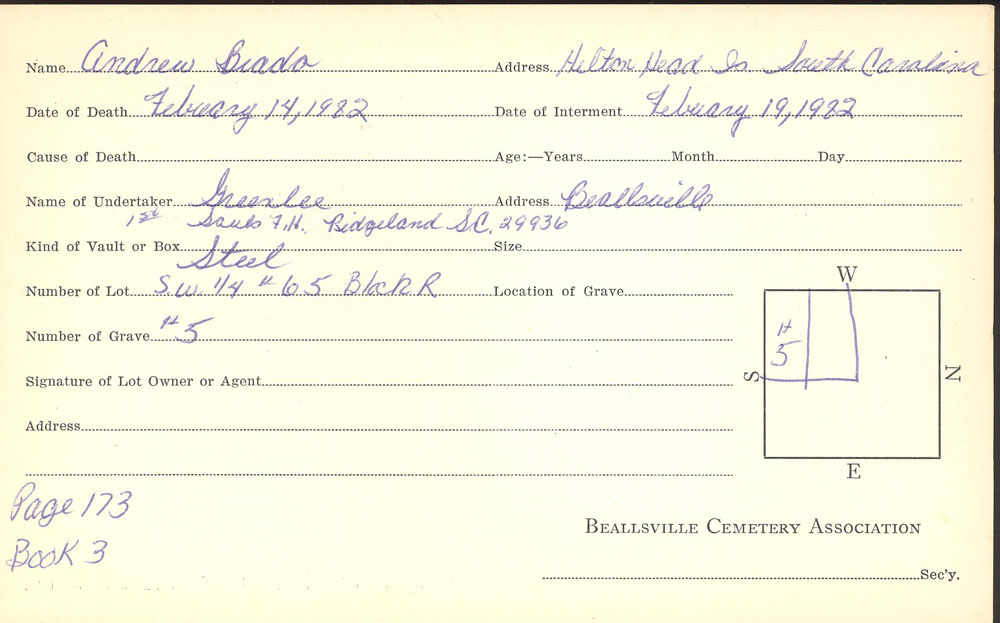 Name Andrew Biado Address Hilton Head Is South Carolina
Date of Death February 14, 1982 Date of Interment February 19, 1982
Cause of Death Age:—Years Month Day
Name of Undertaker Greenlee Address Beallsville
1st Sauls F.H. Ridgeland S.C. 29936
Kind of Vault or Box Steel Size
Number of Lot S.W. 1/4 # 65 Block R Location of Grave
Number of Grave #5
Signature of Lot Owner or Agent
Address
W
# 5
S
N
E
Page 173
Book 3
BEALLSVILLE CEMETERY ASSOCIATION
Sec'y.